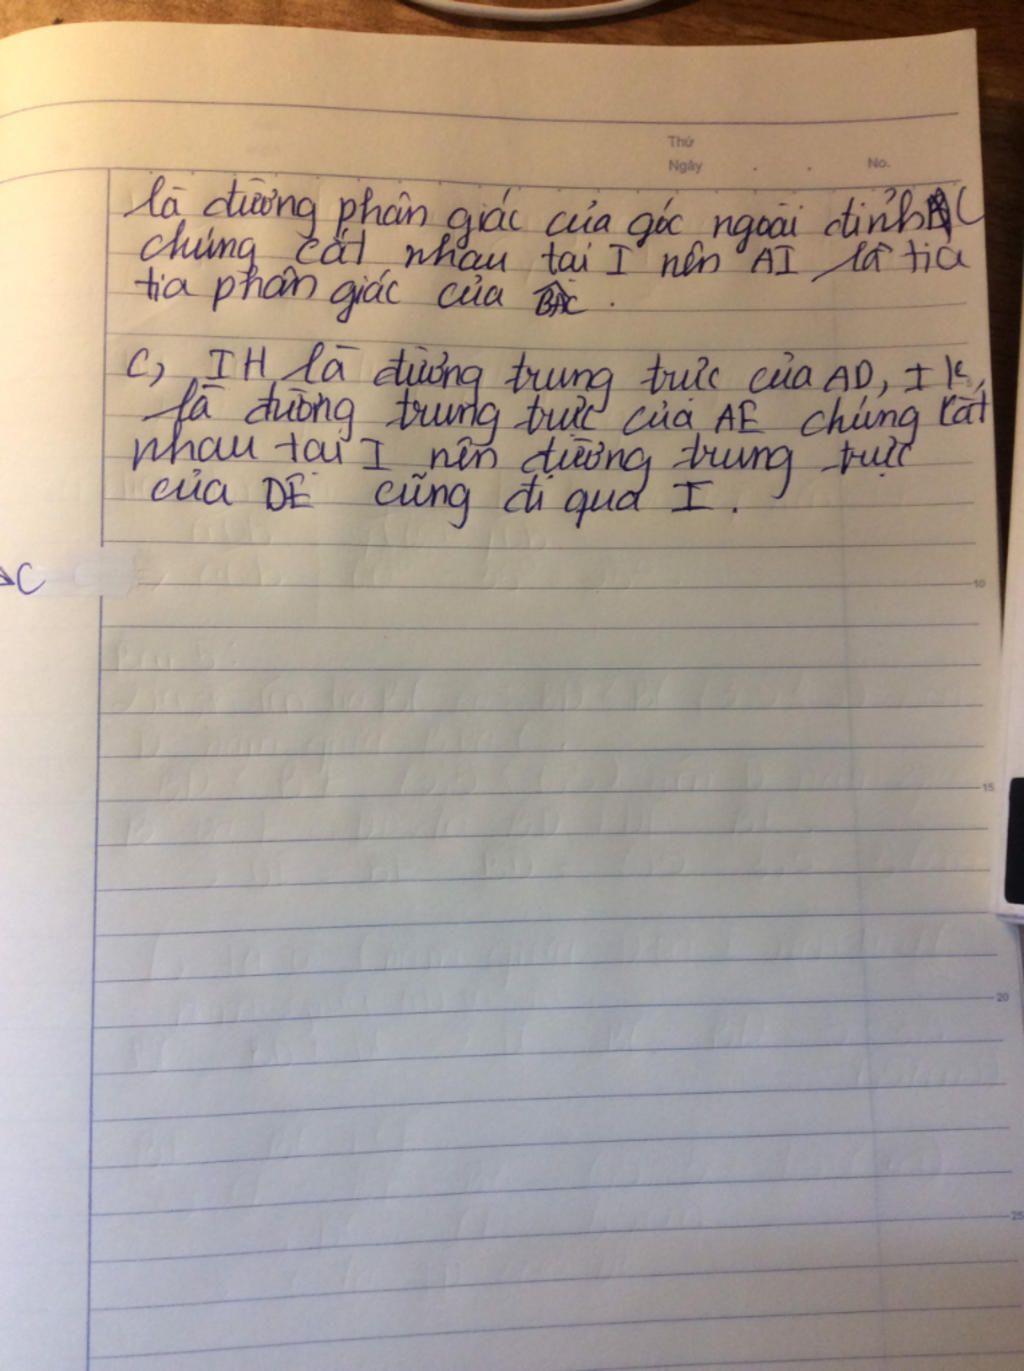 Thứ
Ngày . . No.
là đường phân giác của góc ngoài đỉnh C
chúng cắt nhau tại I nên AI là tia
tia phân giác của BAC.
C, IH là đường trung trực của AD, IK,
là đường trung trực của AE chúng cắt
nhau tại I nên đường trung trực
của DE cũng đi qua I.
C
10
15
20
25